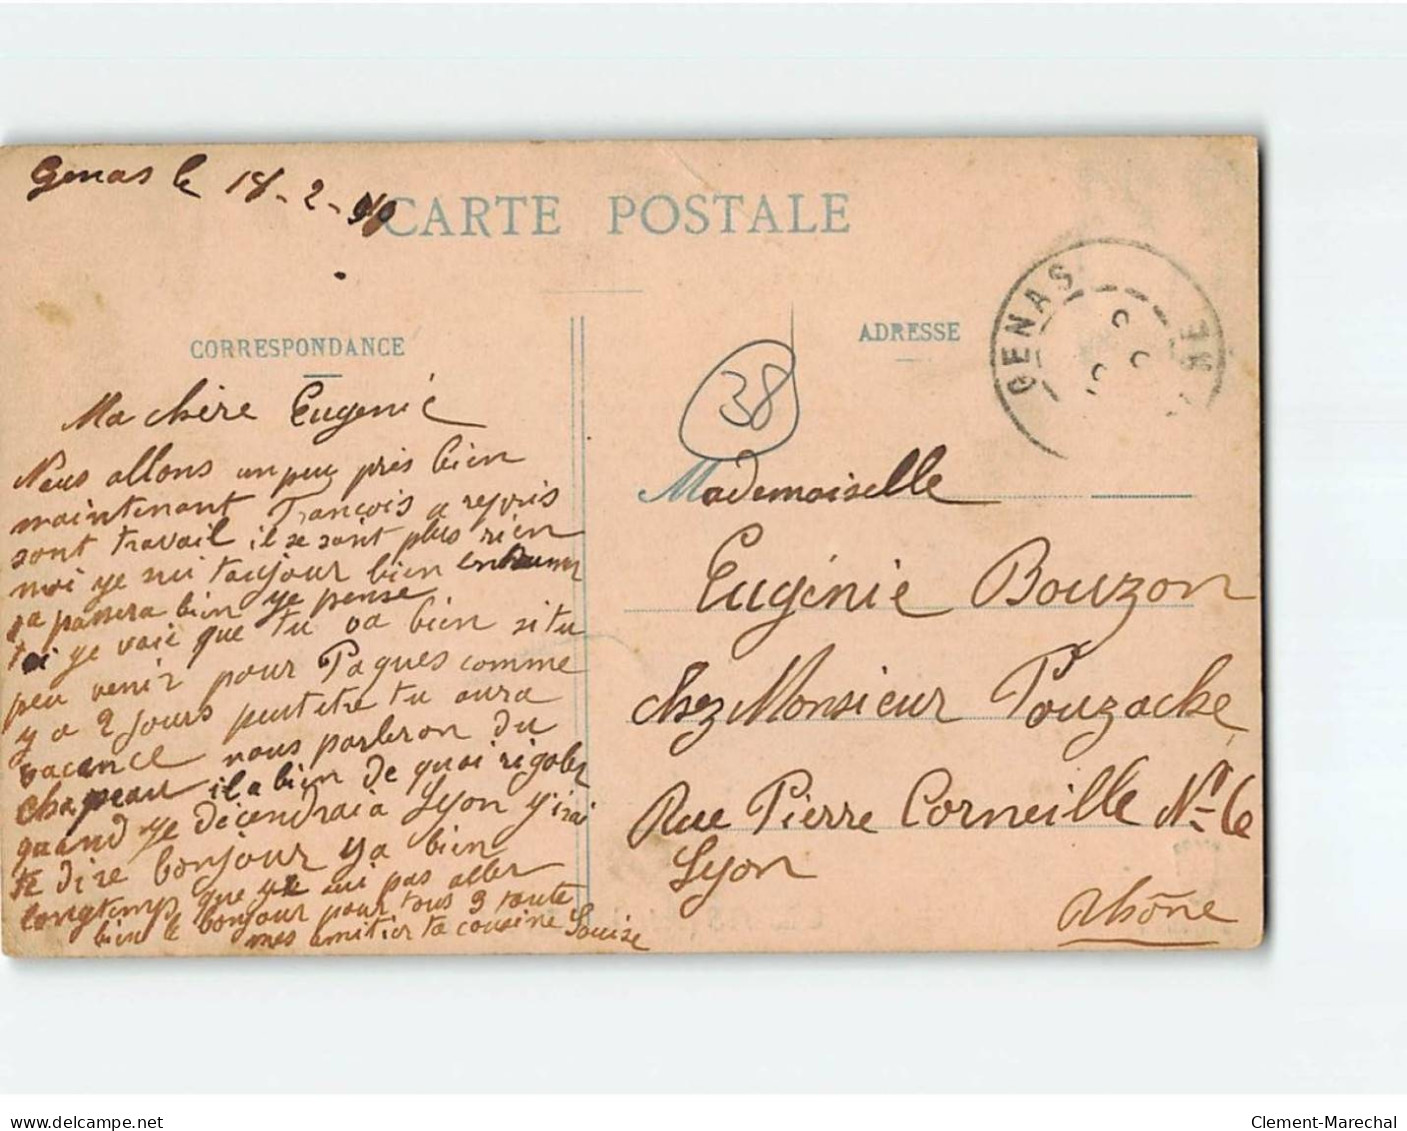 Genas le 18-2-
CARTE POSTALE
CORRESPONDANCE
Ma chère Eugenie
Nous allons un peu près bien
maintenant François a repris
sont travail il se sant plus rien
moi ye sui toujour bien
sa passera bien ye pense
toi ye vaie que tu va bien si tu
peu venir pour Paques comme
y a 2 jours peut etre tu aura
vacance nous parleron du
chapeau il a bien de quoi rigoler
quand ye décendrai a Lyon y'irai
te dire bonjour y a bien
longtemp que ye sui pas aller
bien le bonjour pour tous 3 toute
mes amitier ta cousine Louise
ADRESSE
GENAS
38
Mademoiselle
Eugénie Bouzon
chez Monsieur Pouzache
Rue Pierre Corneille No 6
Lyon
Rhône
Clement-Marechal
www.delcampe.net